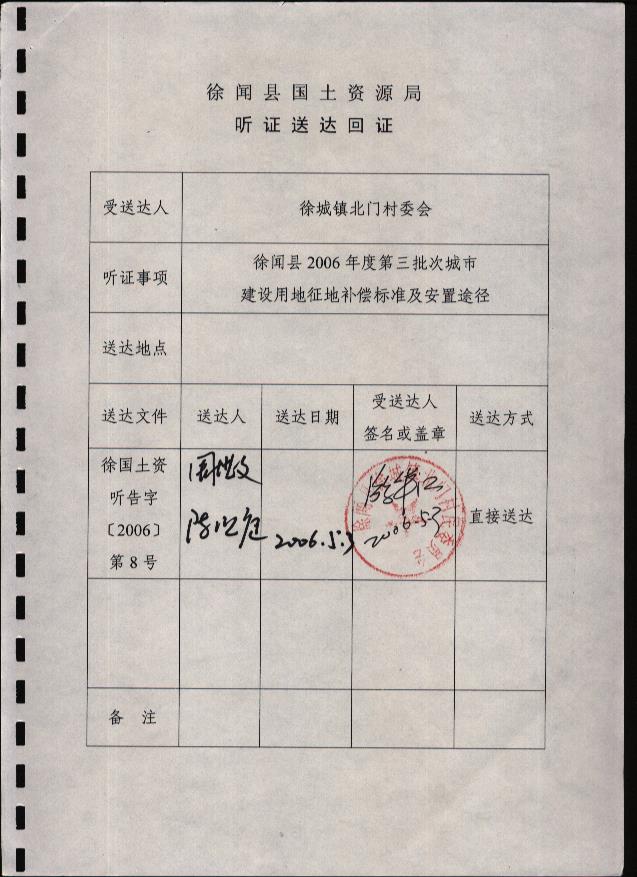 徐闻县国土资源局
听证送达回证
受送达人
徐城镇北门村委会
听证事项
徐闻县2006年度第三批次城市
建设用地征地补偿标准及安置途径
送达地点
送达文件
送达人
送达日期
受送达人
签名或盖章
送达方式
徐国土资
听告字
〔2006〕
第8号
2006.5.3
2006.5.3
直接送达
备 注